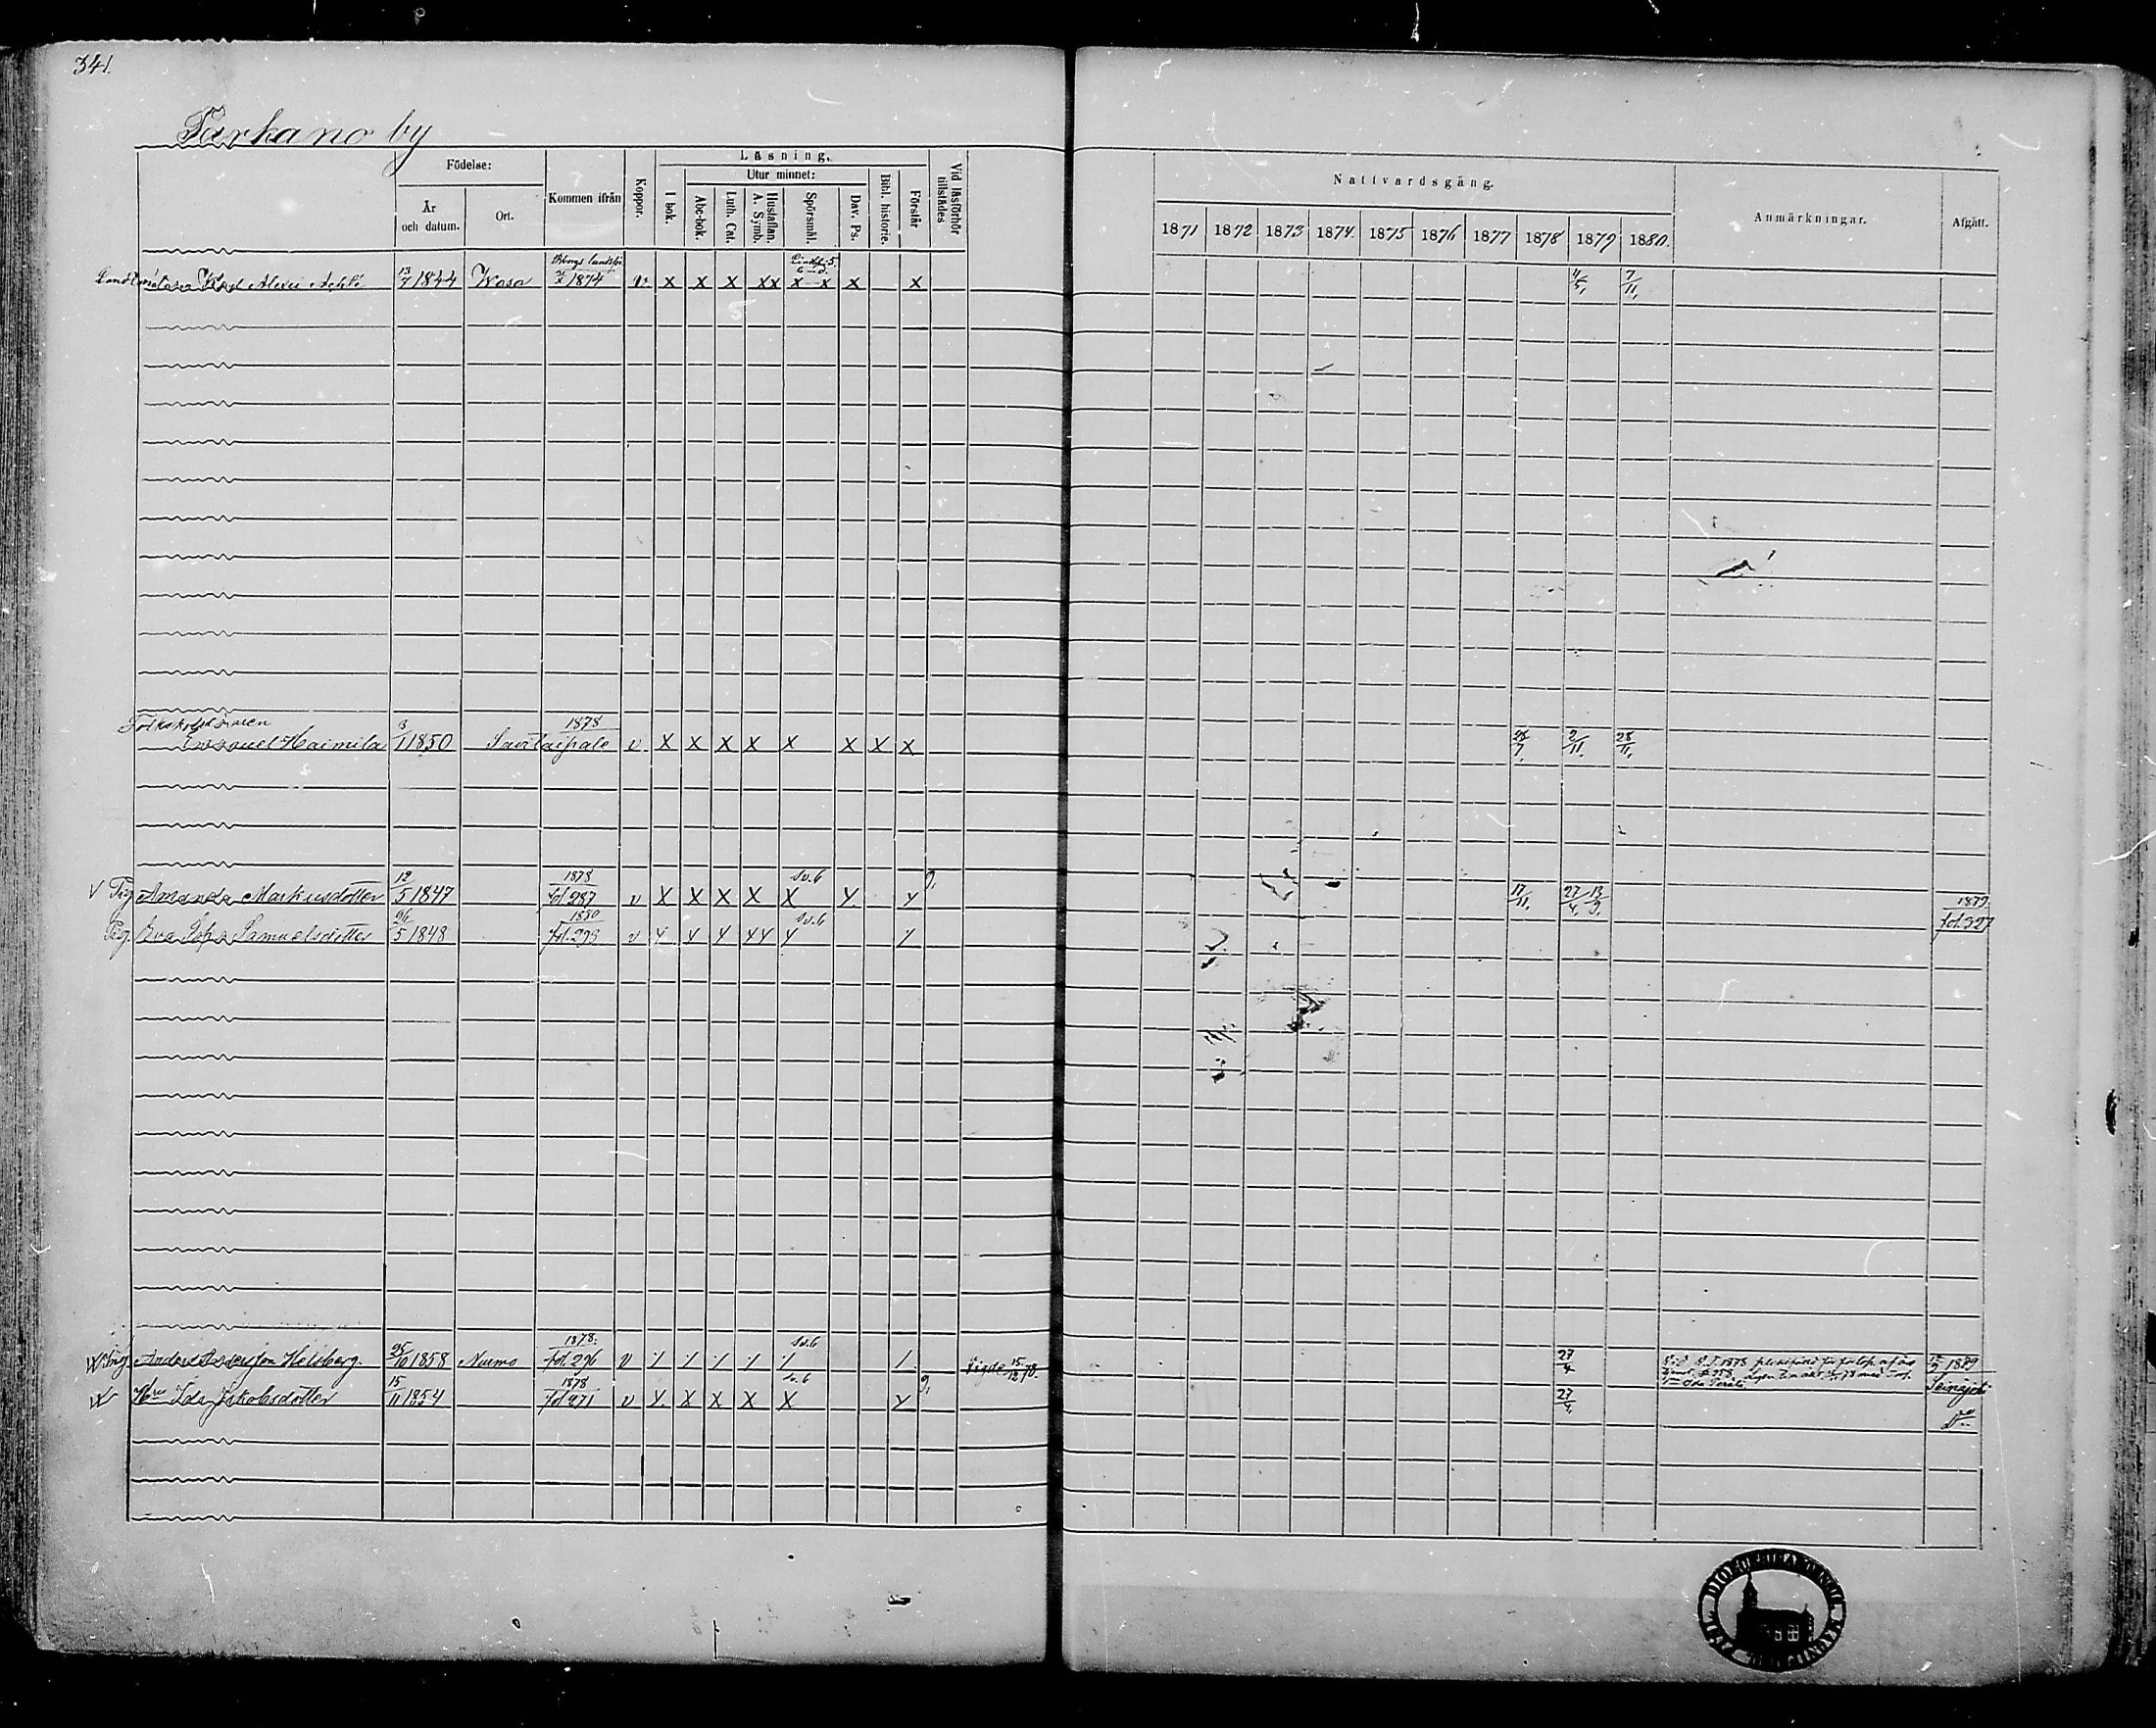 341.
Parkano by
Födelse:
År och datum.
Ort.
Kommen ifrån
Koppor.
Läsning.
I bok.
Utur minnet:
Abc-bok.
Luth. Cat.
Hustaflan. A. Symb.
Spörsmål.
Dav. Ps.
Bibl. historie.
Förstår
Vid läsförhör tillstädes
Nattvardsgång.
1871 1872 1873 1874. 1875 1876 1877 1878 1879 1880.
Anmärkningar.
Afgått.
Alexei 13/7 1844 Wasa 1874 x x x xx x x x x 7/11.
Emanuel Haimila 13/1 1850 Savitaipale 1878 v x x x x x x x x 28/7. 2/11. 28/11.
V Pig. Amanda Markusdotter 12/5 1847 1878 fol 287 v x x x x Sv.6 x x x 17/11. 27/4. 13/9. 1879 fol. 327
Pig. Eva Soph. Samuelsdotter 26/5 1848 1880 fol. 298 v x x x xx Sv.6 x x
Anders Andersson Helsberg. 25/10 1858 Nurmo 1878. fol. 296 v Sv.6 Vigde 15/12 78. 27/4 1879 Seinäjoki
Hru Ida Jakobsdotter 15/11 1854 1878 fol 271 v x x x x Sv.6 x x 27/4. Do